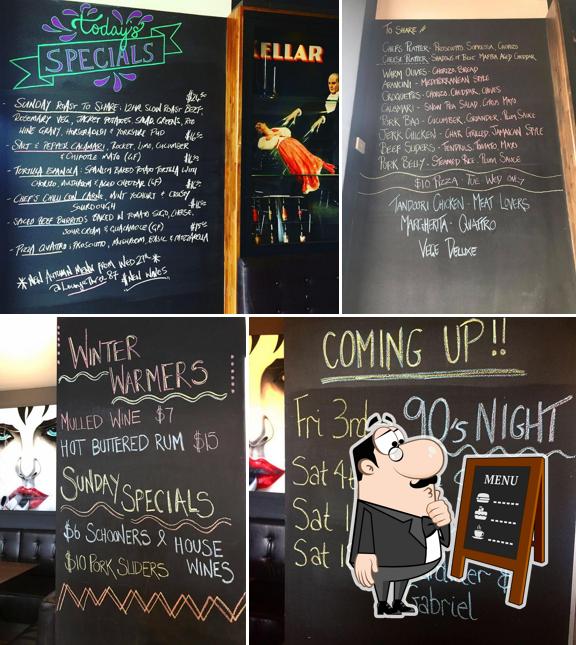 today's
SPECIALS
- SUNDAY ROAST TO SHARE: 12HR SLOW ROAST BEEF,
ROSEMARY VEG, JACKET POTATOES, GREENS, RED
WINE GRAVY, HORSERADISH & YORKSHIRE PUD
- SALT & PEPPER CALAMARI, ROCKET, LIME, CUCUMBER
& CHIPOTLE MAYO (GF)
- TORTILLA ESPANOLA: SPANISH BAKED POTATO TORTILLA WITH
CHORIZO, MUSHROOM & AGED CHEDDAR (GF)
- CHEF'S CHILLI CON CARNE, MINT YOGHURT & CRUSTY
SOURDOUGH
BAKED IN TOMATO SUGO, CHEESE,
SOUR CREAM & GUACAMOLE (GF)
- PIZZA QUATTRO: PROSCIUTTO, MUSHROOM, BASIL & MOZZARELLA
* NEW AUTUMN MENU FROM WED 21ST *
ELLAR
TO SHARE //
CHEFS PLATTER - PROSCIUTTO, SOPRESSA, CHORIZO
CHEESE PLATTER - SHADOWS OF BLUE, MAFFRA AGED CHEDDAR
WARM OLIVES - CHORIZO, BREAD
ARANCINI - MEDITERRANEAN STYLE
CROQUETTES - CHORIZO, CHEDDAR, CHIVES
CALAMARI - SNOW PEA SALAD, CITRUS MAYO
PORK BAO - CUCUMBER, CORIANDER, PLUM SAUCE
JERK CHICKEN - CHAR GRILLED JAMAICAN STYLE
BEEF SLIDERS - TOMATO MAYO
PORK BELLY - STEAMED RICE, PLUM SAUCE
$10 PIZZA - TUE WED ONLY
TANDOORI CHICKEN - MEAT LOVERS
MARGHERITA - QUATTRO
VEGE DELUXE
WINTER
WARMERS
MULLED WINE $7
HOT BUTTERED RUM $15
SUNDAY SPECIALS
$6 SCHOONERS & HOUSE
WINES
$10 PORK SLIDERS
COMING UP!!
Fri 3rd 90's NIGHT
Sat 4
Sat 1
Sat 1
Gabriel
MENU